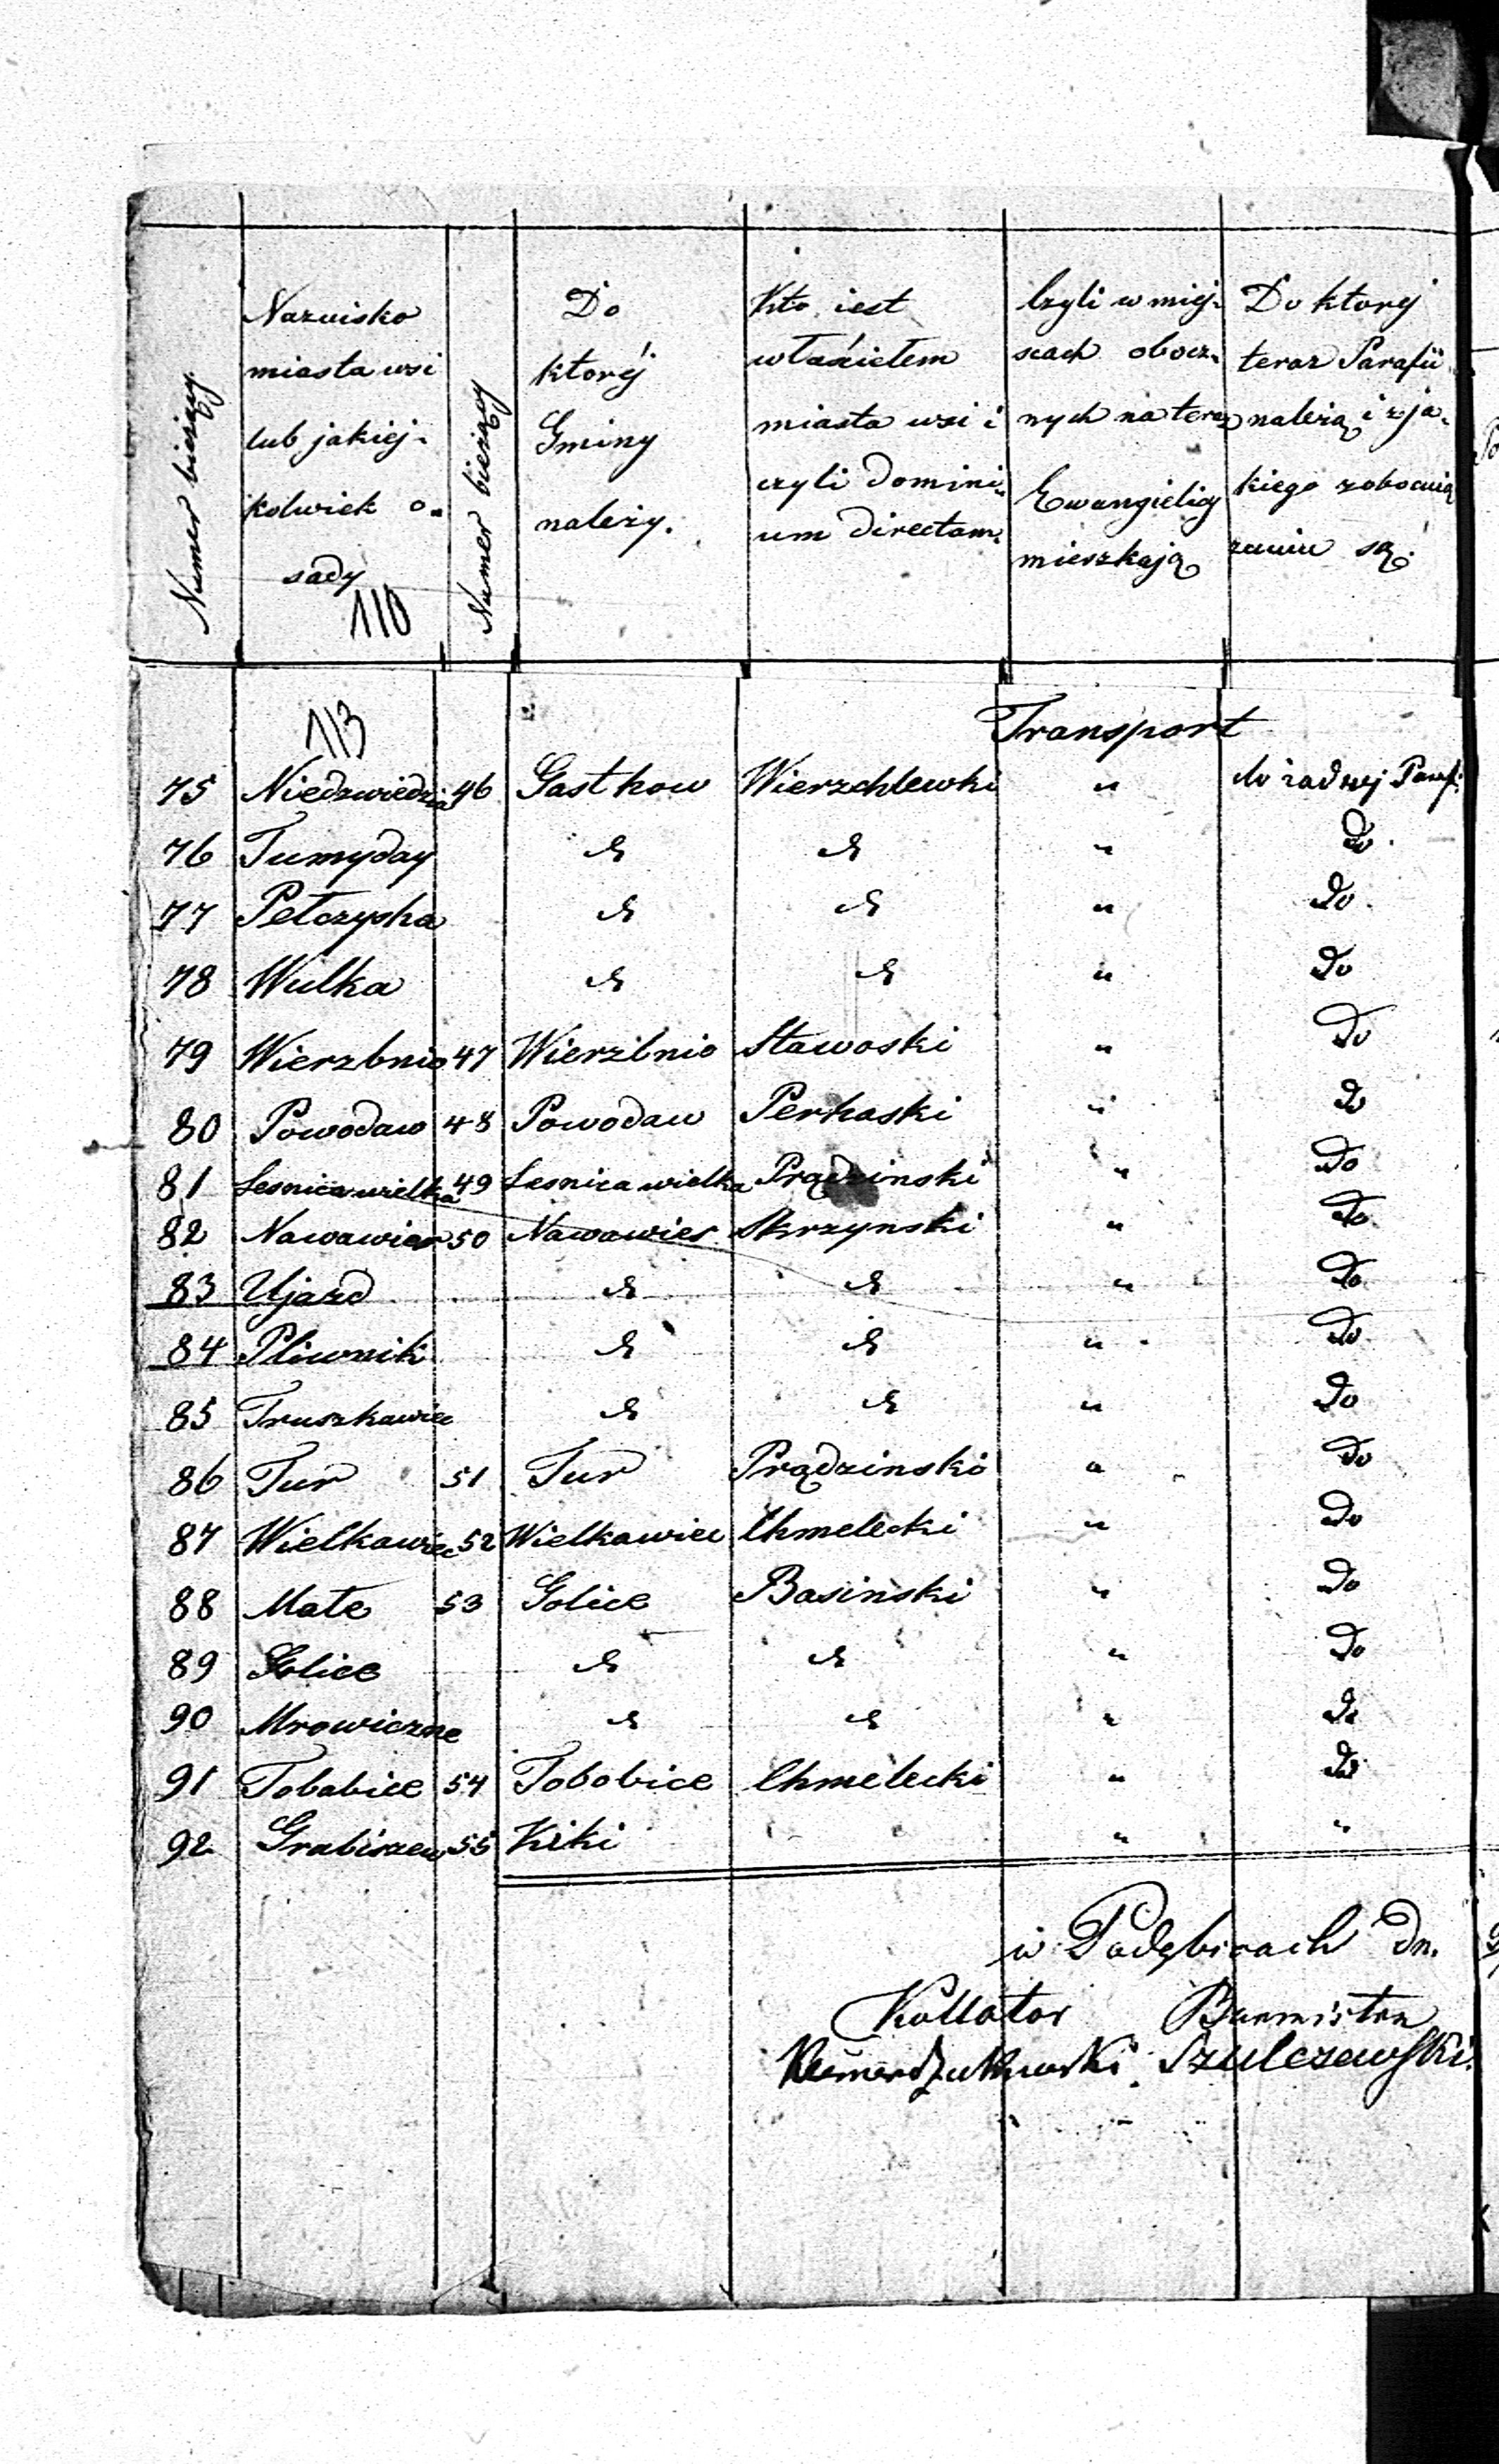 Numer bieżący.
Nazwisko
miasta wsi
lub jakiej-
kolwiek o-
sady
110
Numer bieżący
Do
ktorej
Gminy
należy.
Kto iest
właścicielem
miasta wsi i
czyli Domini-
um directam.
Czyli w miej-
scach obocz-
nych na teraz
Ewangielicy
mieszkają
Do ktorej
teraz Parafii
należą i z ja-
kiego
są.
113
Transport
75 Niedzwiedzia 46 Gostkow Wierzchlewki " do żadnej Parafi
76 Tumyday do do " do.
77 Pełczyska do do " do.
78 Wulka do do " do
79 Wierzbnio 47 Wierzbnio Stawoski " do
80 Powodow 48 Powodow Perkoski " do
81 Lesnica wielka 49 Lesnica wielka Prądzinski " do
82 Nowawies 50 Nowawies Skrzynski " do
83 Ujazd do do " do
84 Pliwnik do do " do
85 Truszkawiec do do " do
86 Tur 51 Tur Prądzinski " do
87 Wielkawiec 52 Wielkawiec Chmelecki " do
88 Małe 53 Golice Basinski " do
89 Golice do do " do
90 Mrowiczne do do " do
91 Tobolice 54 Tobolice Chmelecki " do
92 Grabiszew 55 Kiki " "
w Podębicach dn.
Kollator Burmistrz
Szulczewski.